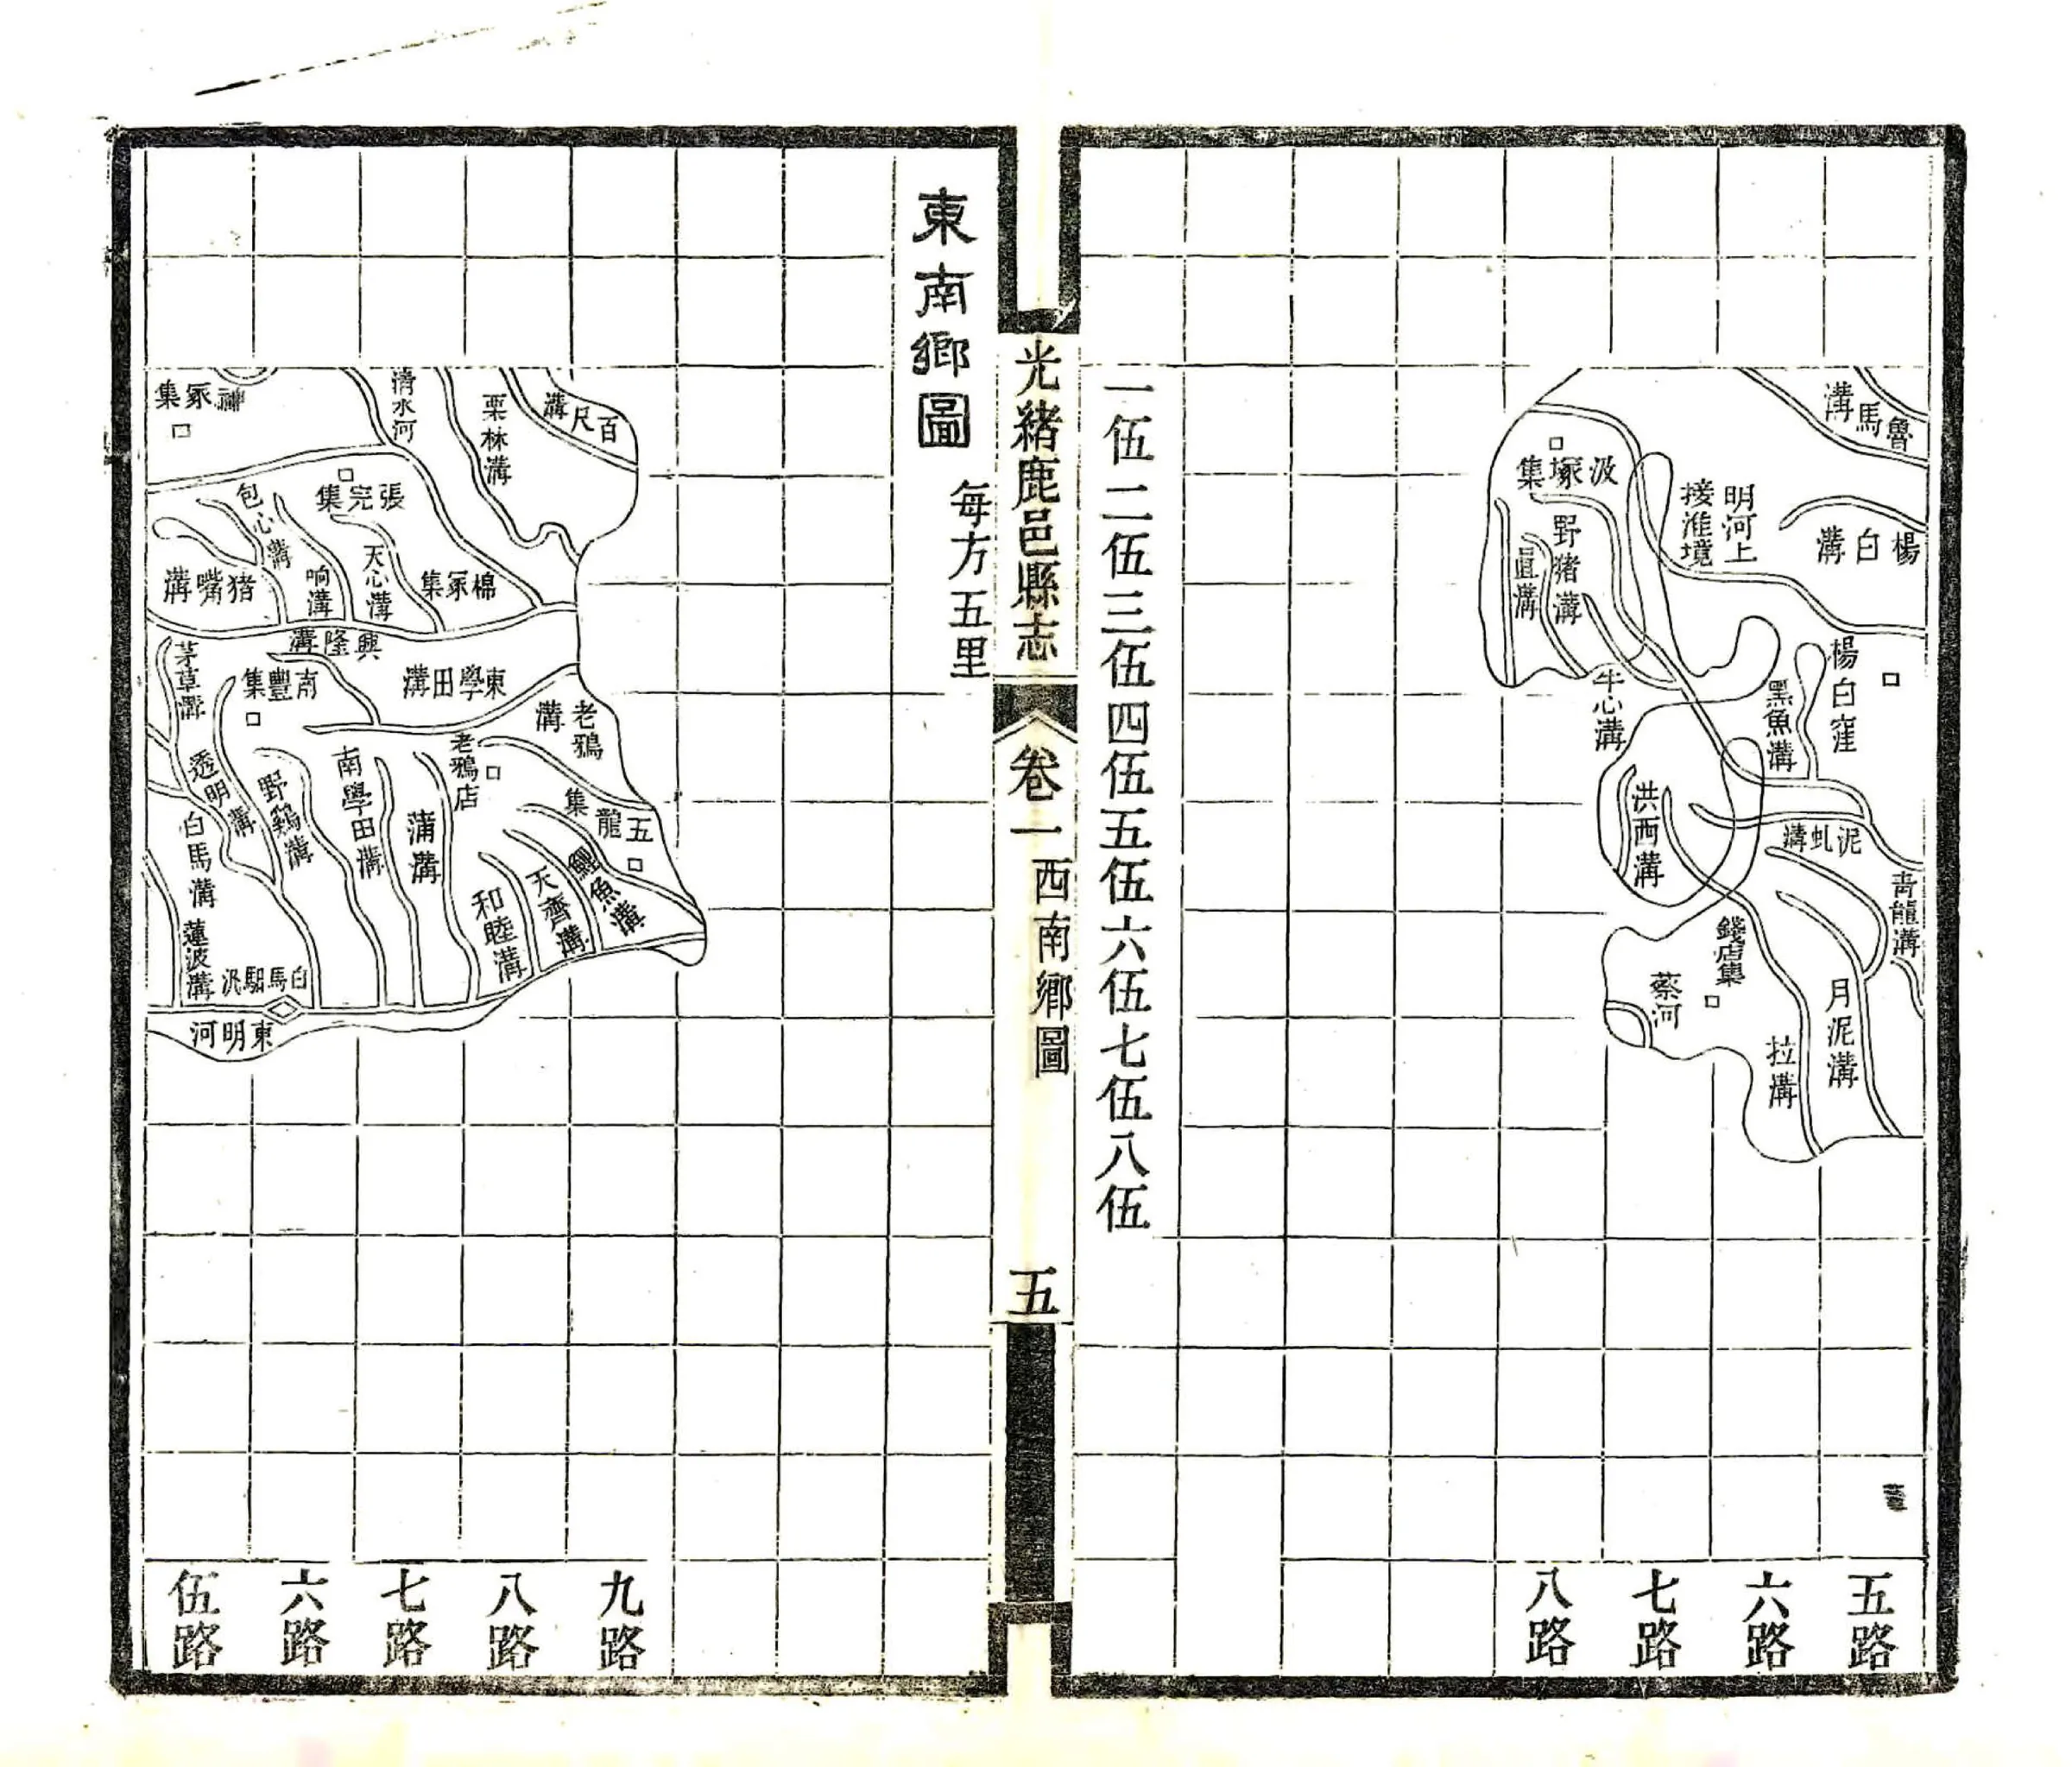 魯馬溝
楊白溝
明河上
接淮境
汲塚集
野豬溝
牛心溝
楊白窪
黑魚溝
洪西溝
泥虬溝
青龍溝
錢店集
蔡河
月泥溝
拉溝
五路
六路
七路
八路
一伍二伍三伍四伍五伍六伍七伍八伍
光緒鹿邑縣志
卷一
西南鄉圖
五
東南鄉圖
每方五里
百尺溝
栗林溝
清水河
神冢集
張完集
包心溝
天心溝
响溝
豬嘴溝
棉冢集
興隆溝
茅草溝
南豐集
東學田溝
老鴉溝
老鴉店
五龍集
鯉魚溝
天齊溝
和睦溝
蒲溝
南學田溝
野鷄溝
透明溝
白馬溝
蓮波溝
白馬驛汛
東明河
九路
八路
七路
六路
伍路